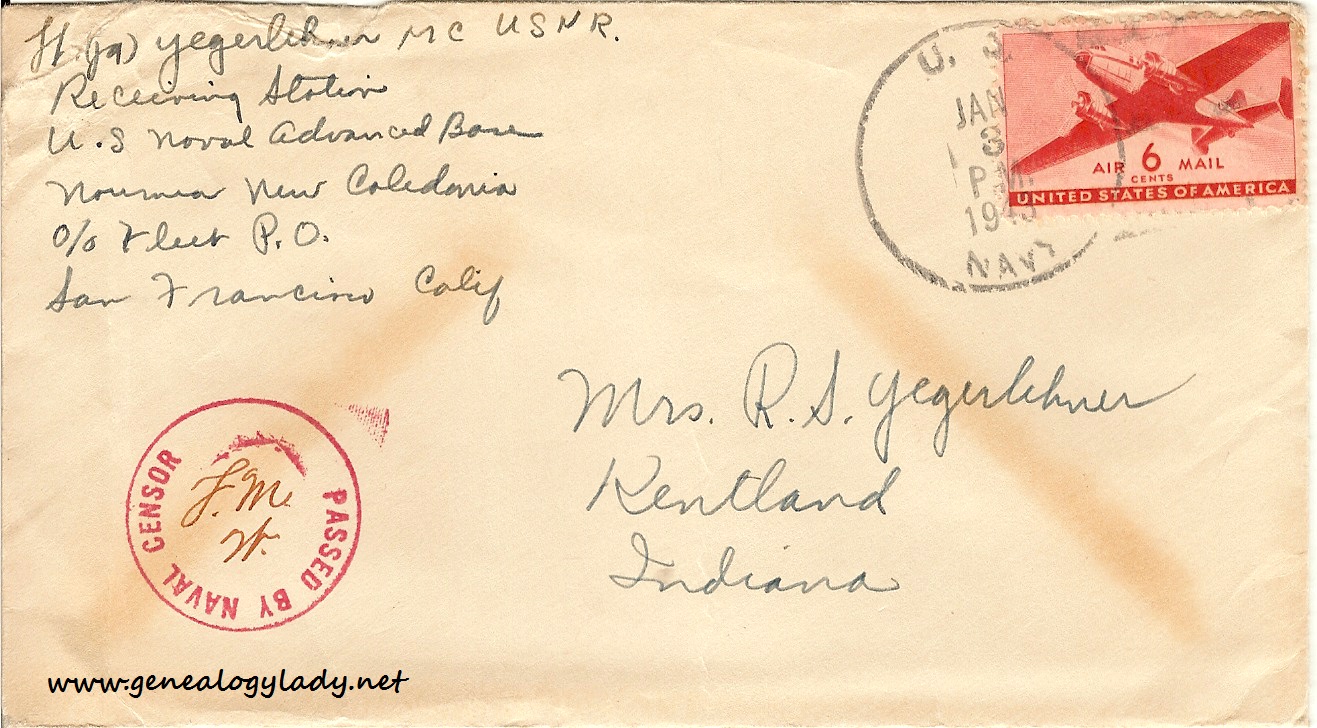 Lt. (jg) Yegerlehner MC USNR.
Receiving Station
U.S Naval Advanced Base
Noumea New Caledonia
c/o Fleet P.O.
San Francisco Calif
U. S.
JAN
3
P.M.
1943
NAVY
AIR 6 MAIL
CENTS
UNITED STATES OF AMERICA
Mrs. R. S. Yegerlehner
Kentland
Indiana
PASSED BY NAVAL CENSOR
F.M.
W.
www.genealogylady.net